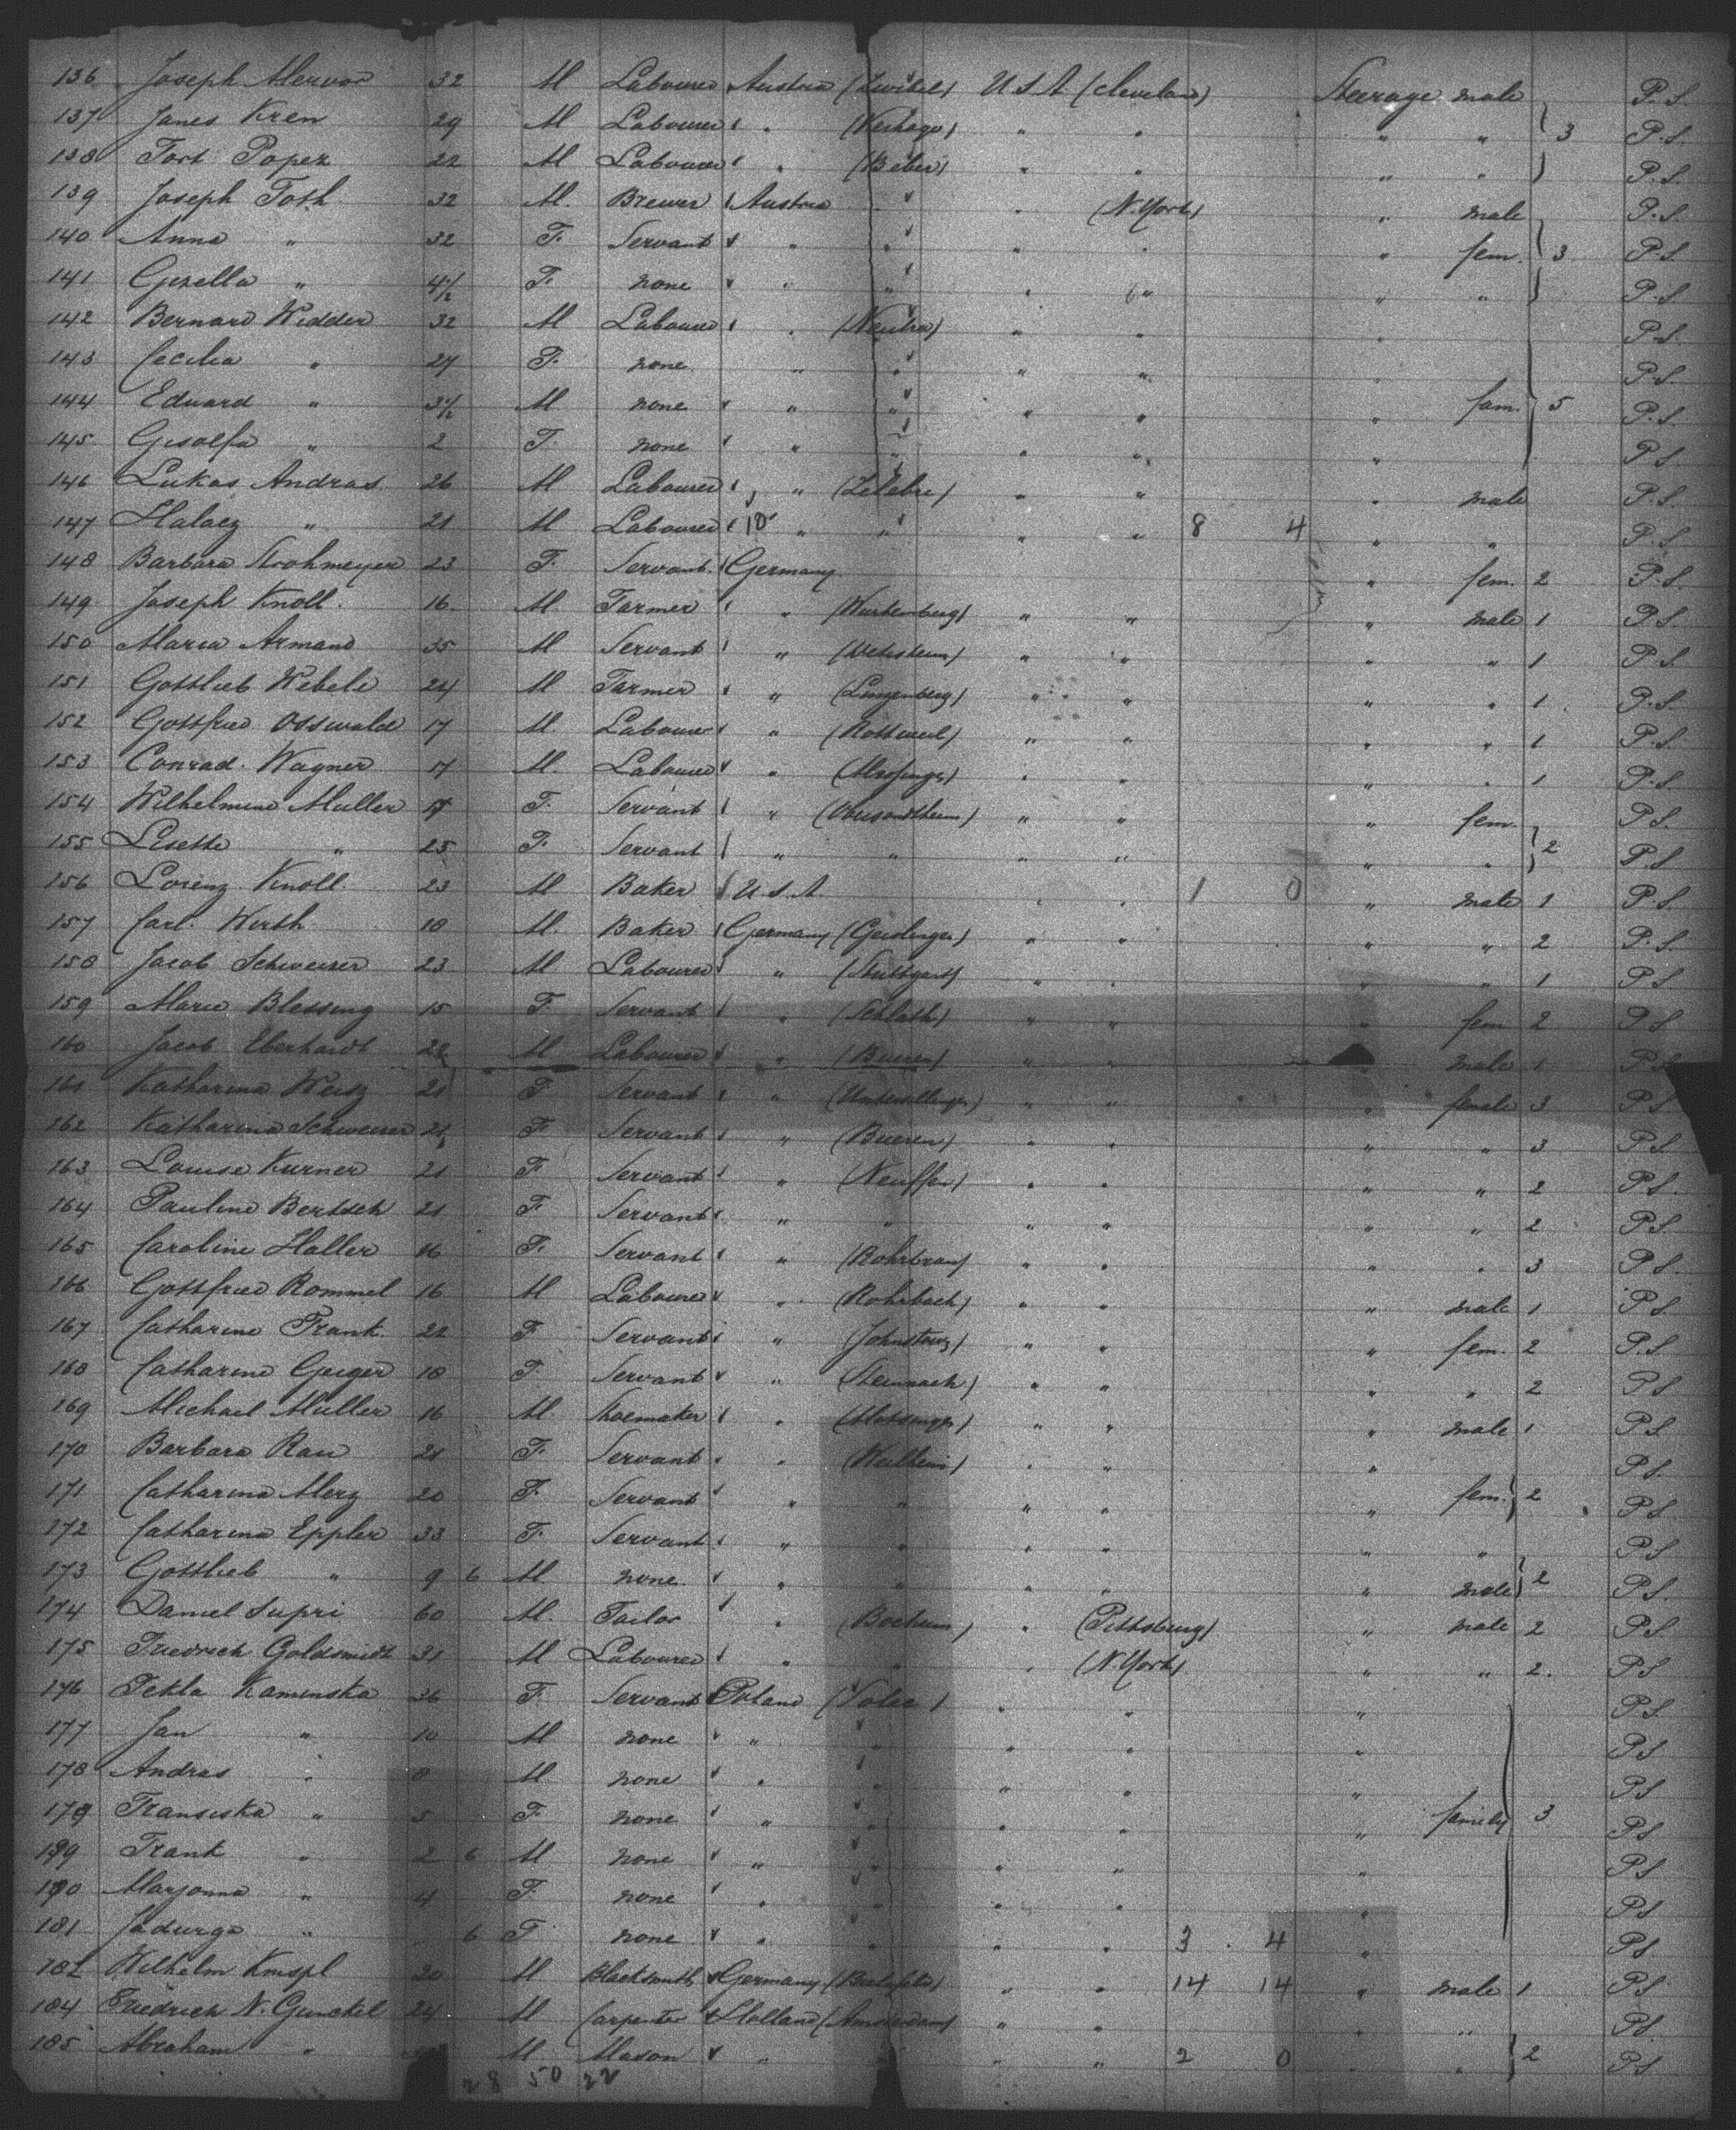 136 Joseph Mervar 32 M Labourer Austria (Zwibel) U.S.A. (Cleveland) Steerage male P.S.
137 Janes Kren 29 M Labourer " " " " " } 3 P.S.
138 Tort Papez 22 M Labourer " (Biber) " " " " P.S.
139 Joseph Toth 32 M. Brewer Austria " (N. York) " male P.S.
140 Anna " 32 F. Servant " " " " " fem. } 3 P.S.
141 Gezella " 4 1/2 F. none " " " " " " P.S.
142 Bernard Widder 32 M Labourer " (Neutra) " " " P.S.
143 Cecilia " 27 F. none " " " " " P.S.
144 Eduard " 3 1/2 M none " " " " " fam. } 5 P.S.
145 Gisolfa " 2 F. none " " " " " P.S.
146 Lukas Andras 26 M Labourer " " " " male P.S.
147 Halacz " 21 M Labourer 10 " " " " 8 4 " " P.S.
148 Barbara Strohmeyer 23 F. Servant Germany " fem. 2 P.S.
149 Joseph Knoll. 16 M. Farmer " (Wurtemberg) " " " male 1 P.S.
150 Maria Armand 35 M Servant " " " " " 1 P.S.
151 Gottlieb Webele 24 M Farmer " " " " " 1 P.S.
152 Gottfried Osswald 17 M. Labourer " (Rottweil) " " " " 1 P.S.
153 Conrad Wagner 17 M. Labourer " " " " " 1 P.S.
154 Wilhelmine Muller 17 F. Servant " " " " fem. P.S.
155 Lisette " 25 F. Servant " " " " " " } 2 P.S.
156 Lorenz Knoll 23 M Baker U.S.A. " " 1 0 " male 1 P.S.
157 Carl Werth 18 M. Baker Germany (Geislingen) " " " " 2 P.S.
158 Jacob Schweiser 23 M Labourer " (Stuttgart) " " " " 1 P.S.
159 Marie Blessing 15 F. Servant " (Schlath) " " " fem 2 P.S.
160 Jacob Eberhardt 22 M Labourer " (Bueren) " " " male 1 P.S.
161 Katharina Weisz 21 F Servant " " " " female 3 P.S
162 Katharina Schweiser 21 F Servant " (Bueren) " " " " 3 P.S.
163 Louise Kurner 21 F Servant " (Neuffen) " " " " 2 P.S.
164 Pauline Bertsch 21 F Servant " " " " " " 2 P.S
165 Caroline Haller 16 F. Servant " " " " " 3 P.S.
166 Gottfried Rommel 16 M Labourer " (Rohrbach) " " " male 1 P.S.
167 Catharine Frank 22 F Servant " " " " fem. 2 P.S.
168 Catharine Geiger 18 F. Servant " (Steinnach) " " " " 2 P.S
169 Michael Muller 16 M. Shoemaker " " " " male 1 P.S
170 Barbara Rau 21 F. Servant " (Weilheim) " " " P.S.
171 Catharina Merz 20 F. Servant " " " " " fem. } 2 P.S
172 Catharina Eppler 33 F. Servant " " " " " " P.S
173 Gottlieb " 9 6 M. none " " " " " male } 2 P.S.
174 Daniel Supri 60 M. Tailor " (Bochum) " (Pittsburg) " male 2 P.S.
175 Friedrich Goldsmidt 31 M Labourer " " " (N. York) " " 2. P.S
176 Tekla Kaminska 36 F. Servant Poland " " " P.S.
177 Jan " 10 M none " " " " " P.S
178 Andras " 8 M. none " " " " " P.S
179 Fransiska " 5 F none " " " " " family } 3 P.S
199 Frank " 2 6 M none " " " " " P.S
190 Marjonna " 4 F. none " " " " " P.S
181 Jadurga " 6 F none " " " " 3 4 " P.S
182 Wilhelm Knispl 20 M Blacksmith Germany (Bielefeld) " " 14 14 " male 1 P.S
184 Friedrich N. Gunckel 24 M Carpenter Holland (Amsterdam) " " " " P.S.
185 Abraham " M. Mason " " " " 2 0 " " } 2 P.S
28 50 22